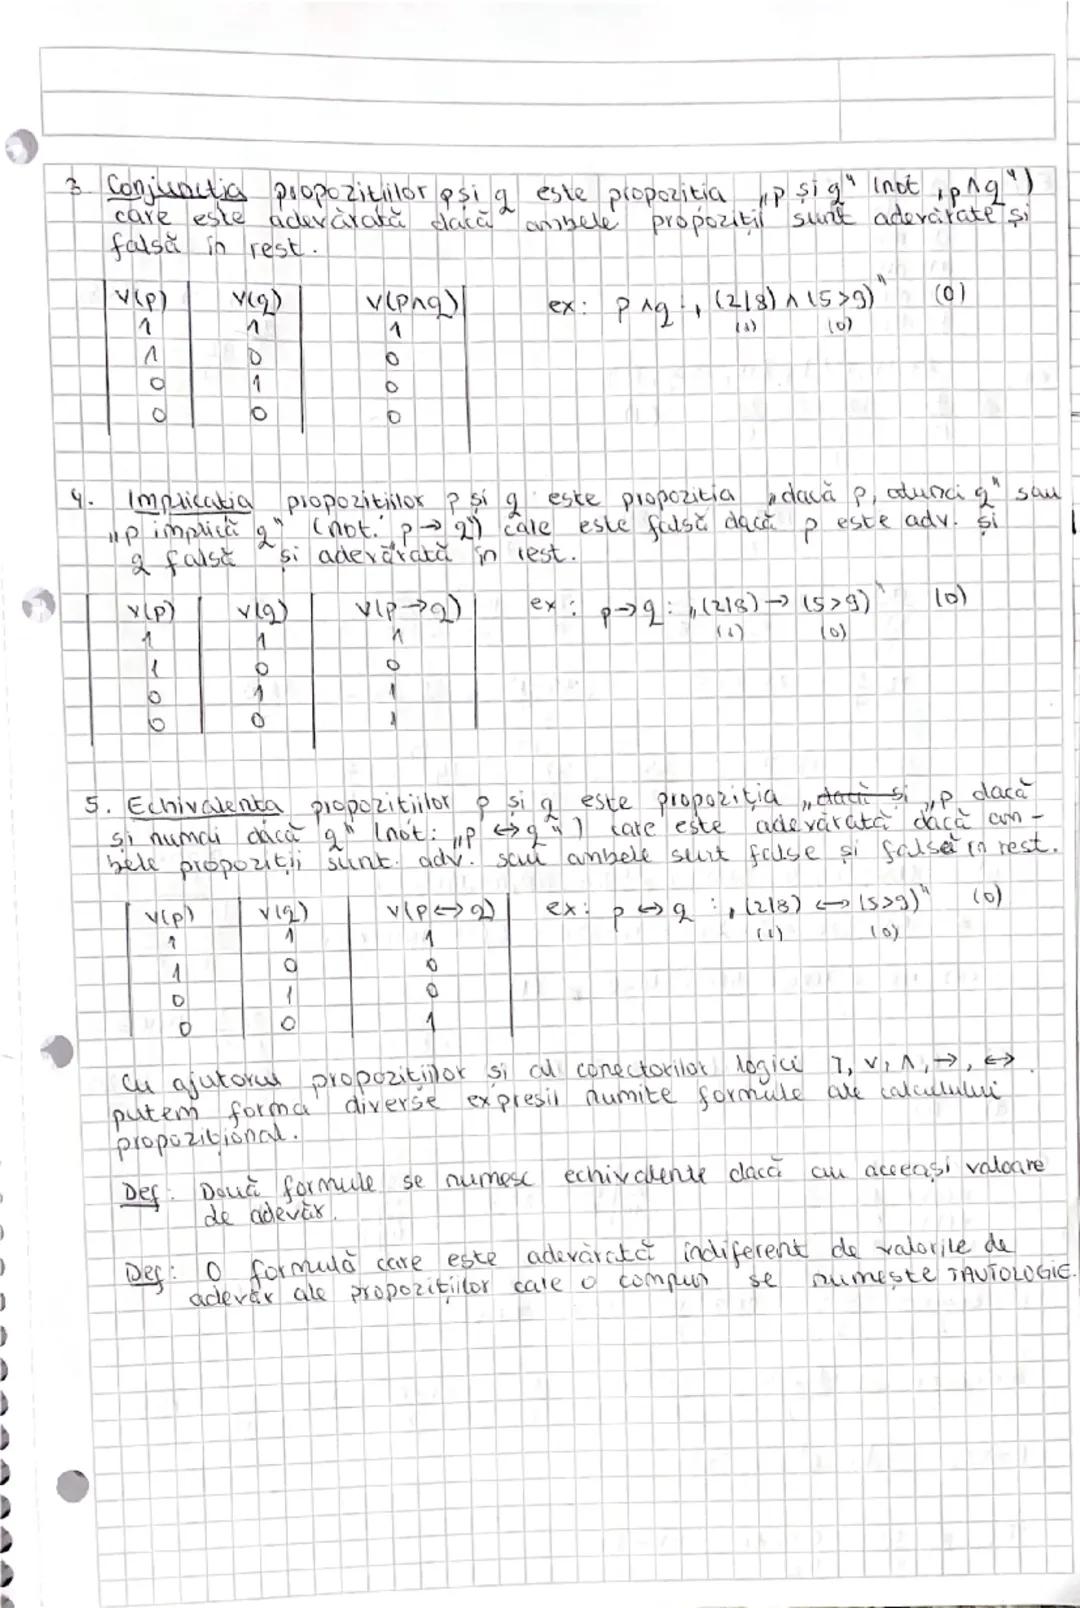 3. Conjuncția propozițiilor p și q este propoziția „p și q" (not „p∧q")
care este adevărată dacă ambele propoziții sunt adevărate și
falsă în rest.
v(p) v(q) v(p∧q) ex: p∧q: „(2|8) ∧ (5>9)" (0)
1 1 1 (1) (0)
1 0 0
0 1 0
0 0 0
4. Implicația propozițiilor p și q este propoziția „dacă p, atunci q" sau
„p implică q" (not. p→q") care este falsă dacă p este adv. și
q falsă și adevărată în rest.
v(p) v(q) v(p→q) ex: p→q: „(2|8) → (5>9)" (0)
1 1 1 (1) (0)
1 0 0
0 1 1
0 0 1
5. Echivalența propozițiilor p și q este propoziția „dacă și „p dacă
și numai dacă q" (not: „p ↔ q") care este adevărată dacă am-
bele propoziții sunt. adv. sau ambele sunt false și falsă în rest.
v(p) v(q) v(p↔q) ex: p ↔ q : „(2|8) ↔ (5>9)" (0)
1 1 1 (1) (0)
1 0 0
0 1 0
0 0 1
Cu ajutorul propozițiilor și al conectorilor logici ⌉, ∨, ∧, →, ↔.
putem forma diverse expresii numite formule ale calculului
propozițional.
Def: Două formule se numesc echivalente dacă au aceeași valoare
de adevăr.
Def: O formulă care este adevărată indiferent de valorile de
adevăr ale propozițiilor care o compun se numește TAUTOLOGIE.